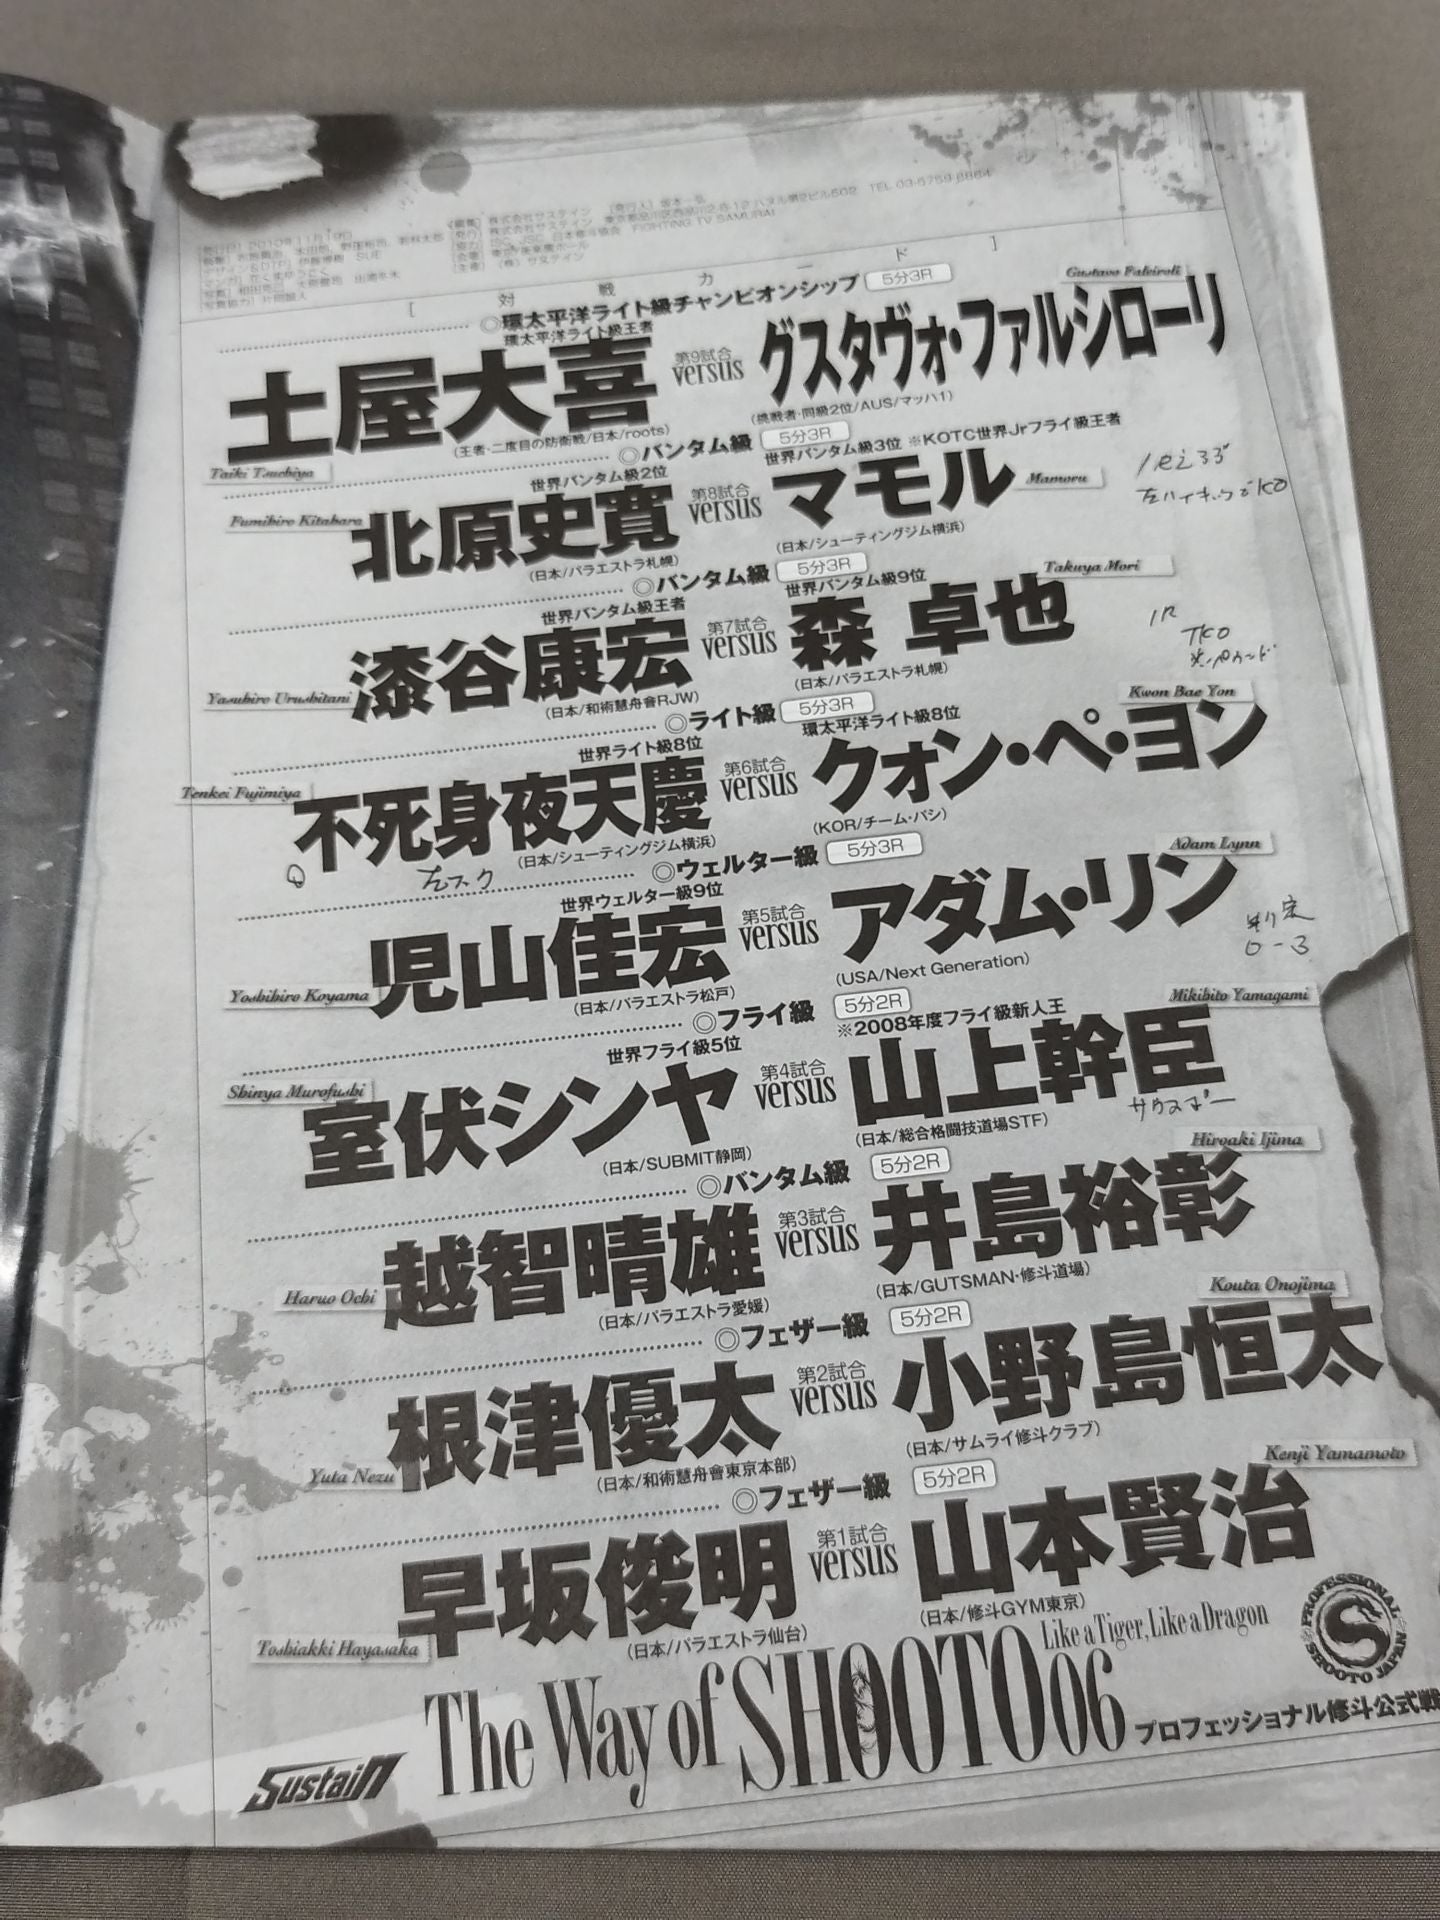 【発行日】2010年11月19日
【編集】株式会社サステイン 【発行人】坂本一弘
【発行】株式会社サステイン
TEL 03-5759-8864
【協力】ISC、JSC、日本修斗協会 FIGHTING TV SAMURAI
【会場】東京/後楽園ホール
【主催】(株)サステイン
[対戦カード]
◎環太平洋ライト級チャンピオンシップ 5分3R
Gustavo Falciroli
環太平洋ライト級王者
土屋大喜 第9試合 versus グスタヴォ・ファルシローリ
(王者・二度目の防衛戦/日本/roots) (挑戦者・同級2位/AUS/マッハ1)
Taiki Tsuchiya
◎バンタム級 5分3R
世界バンタム級2位 世界バンタム級3位 ※KOTC世界Jrフライ級王者
Fumihiro Kitahara 北原史寛 第8試合 versus マモル Mamoru
左ハイキックでKO
(日本/パラエストラ札幌) (日本/シューティングジム横浜)
◎バンタム級 5分3R
Takuya Mori
世界バンタム級王者 世界バンタム級9位
漆谷康宏 第7試合 versus 森 卓也
1R
TKO
Yasuhiro Urushitani
(日本/和術慧舟會RJW) (日本/パラエストラ札幌)
◎ライト級 5分3R
Kwon Bae Yon
世界ライト級8位 環太平洋ライト級8位
Tenkei Fujimiya
不死身夜天慶 第6試合 versus クォン・ペ・ヨン
(日本/シューティングジム横浜) (KOR/チーム・パシ)
◎ウェルター級 5分3R
Adam Lynn
世界ウェルター級9位
児山佳宏 第5試合 versus アダム・リン
判定
0-3
Yoshihiro Koyama
(日本/パラエストラ松戸) (USA/Next Generation)
◎フライ級 5分2R
Mikihito Yamagami
世界フライ級5位 ※2008年度フライ級新人王
Shinya Murofushi
室伏シンヤ 第4試合 versus 山上幹臣
サウスポー
(日本/SUBMIT静岡) (日本/総合格闘技道場STF)
◎バンタム級 5分2R
Hiroaki Ijima
越智晴雄 第3試合 versus 井島裕彰
Haruo Ochi
(日本/パラエストラ愛媛) (日本/GUTSMAN・修斗道場)
◎フェザー級 5分2R
Kouta Onojima
根津優太 第2試合 versus 小野島恒太
Yuta Nezu
(日本/和術慧舟會東京本部) (日本/サムライ修斗クラブ)
◎フェザー級 5分2R
Kenji Yamamoto
早坂俊明 第1試合 versus 山本賢治
Toshiakki Hayasaka
(日本/パラエストラ仙台) (日本/修斗GYM東京)
Like a Tiger, Like a Dragon
PROFESSIONAL SHOOTO JAPAN
Sustain The Way of SHOOTO 06 プロフェッショナル修斗公式戦